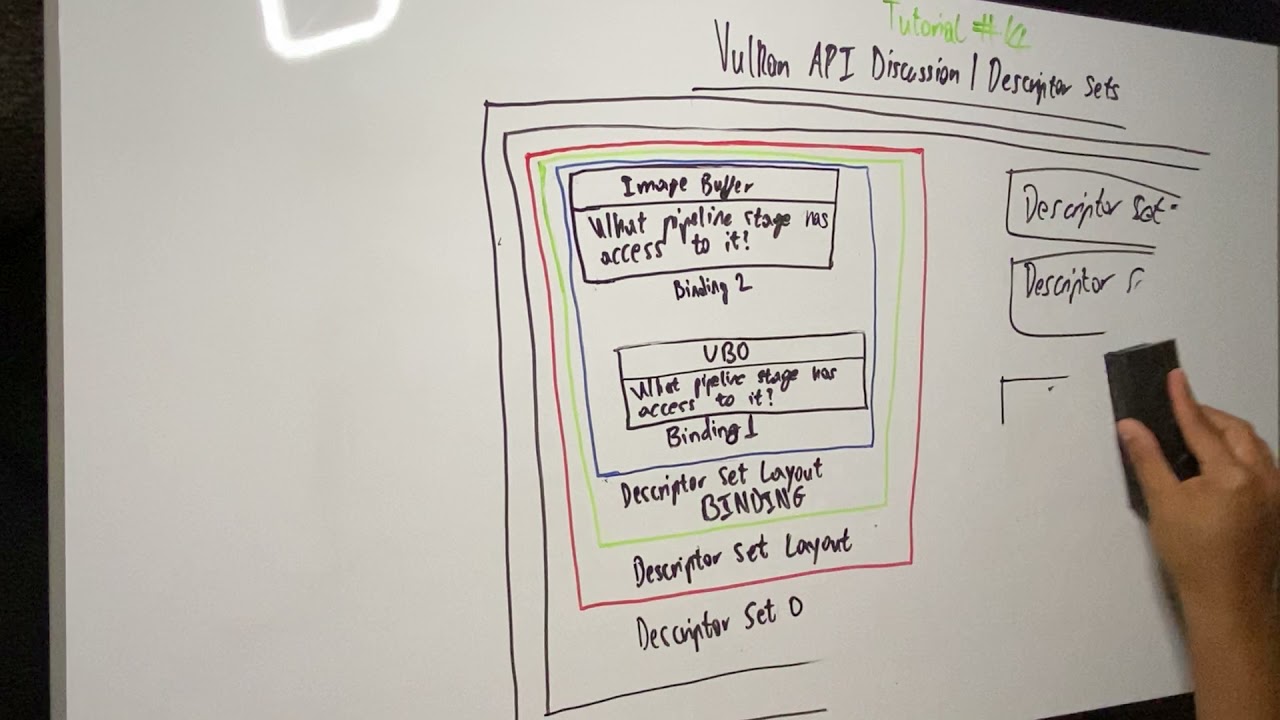 Tutorial #
Vulkan API Discussion | Descriptor Sets
Image Buffer
What pipeline stage has
access to it?
Binding 2
UBO
What pipeline stage has
access to it?
Binding 1
Descriptor Set Layout
BINDING
Descriptor Set Layout
Descriptor Set 0
Descriptor Set
Descriptor